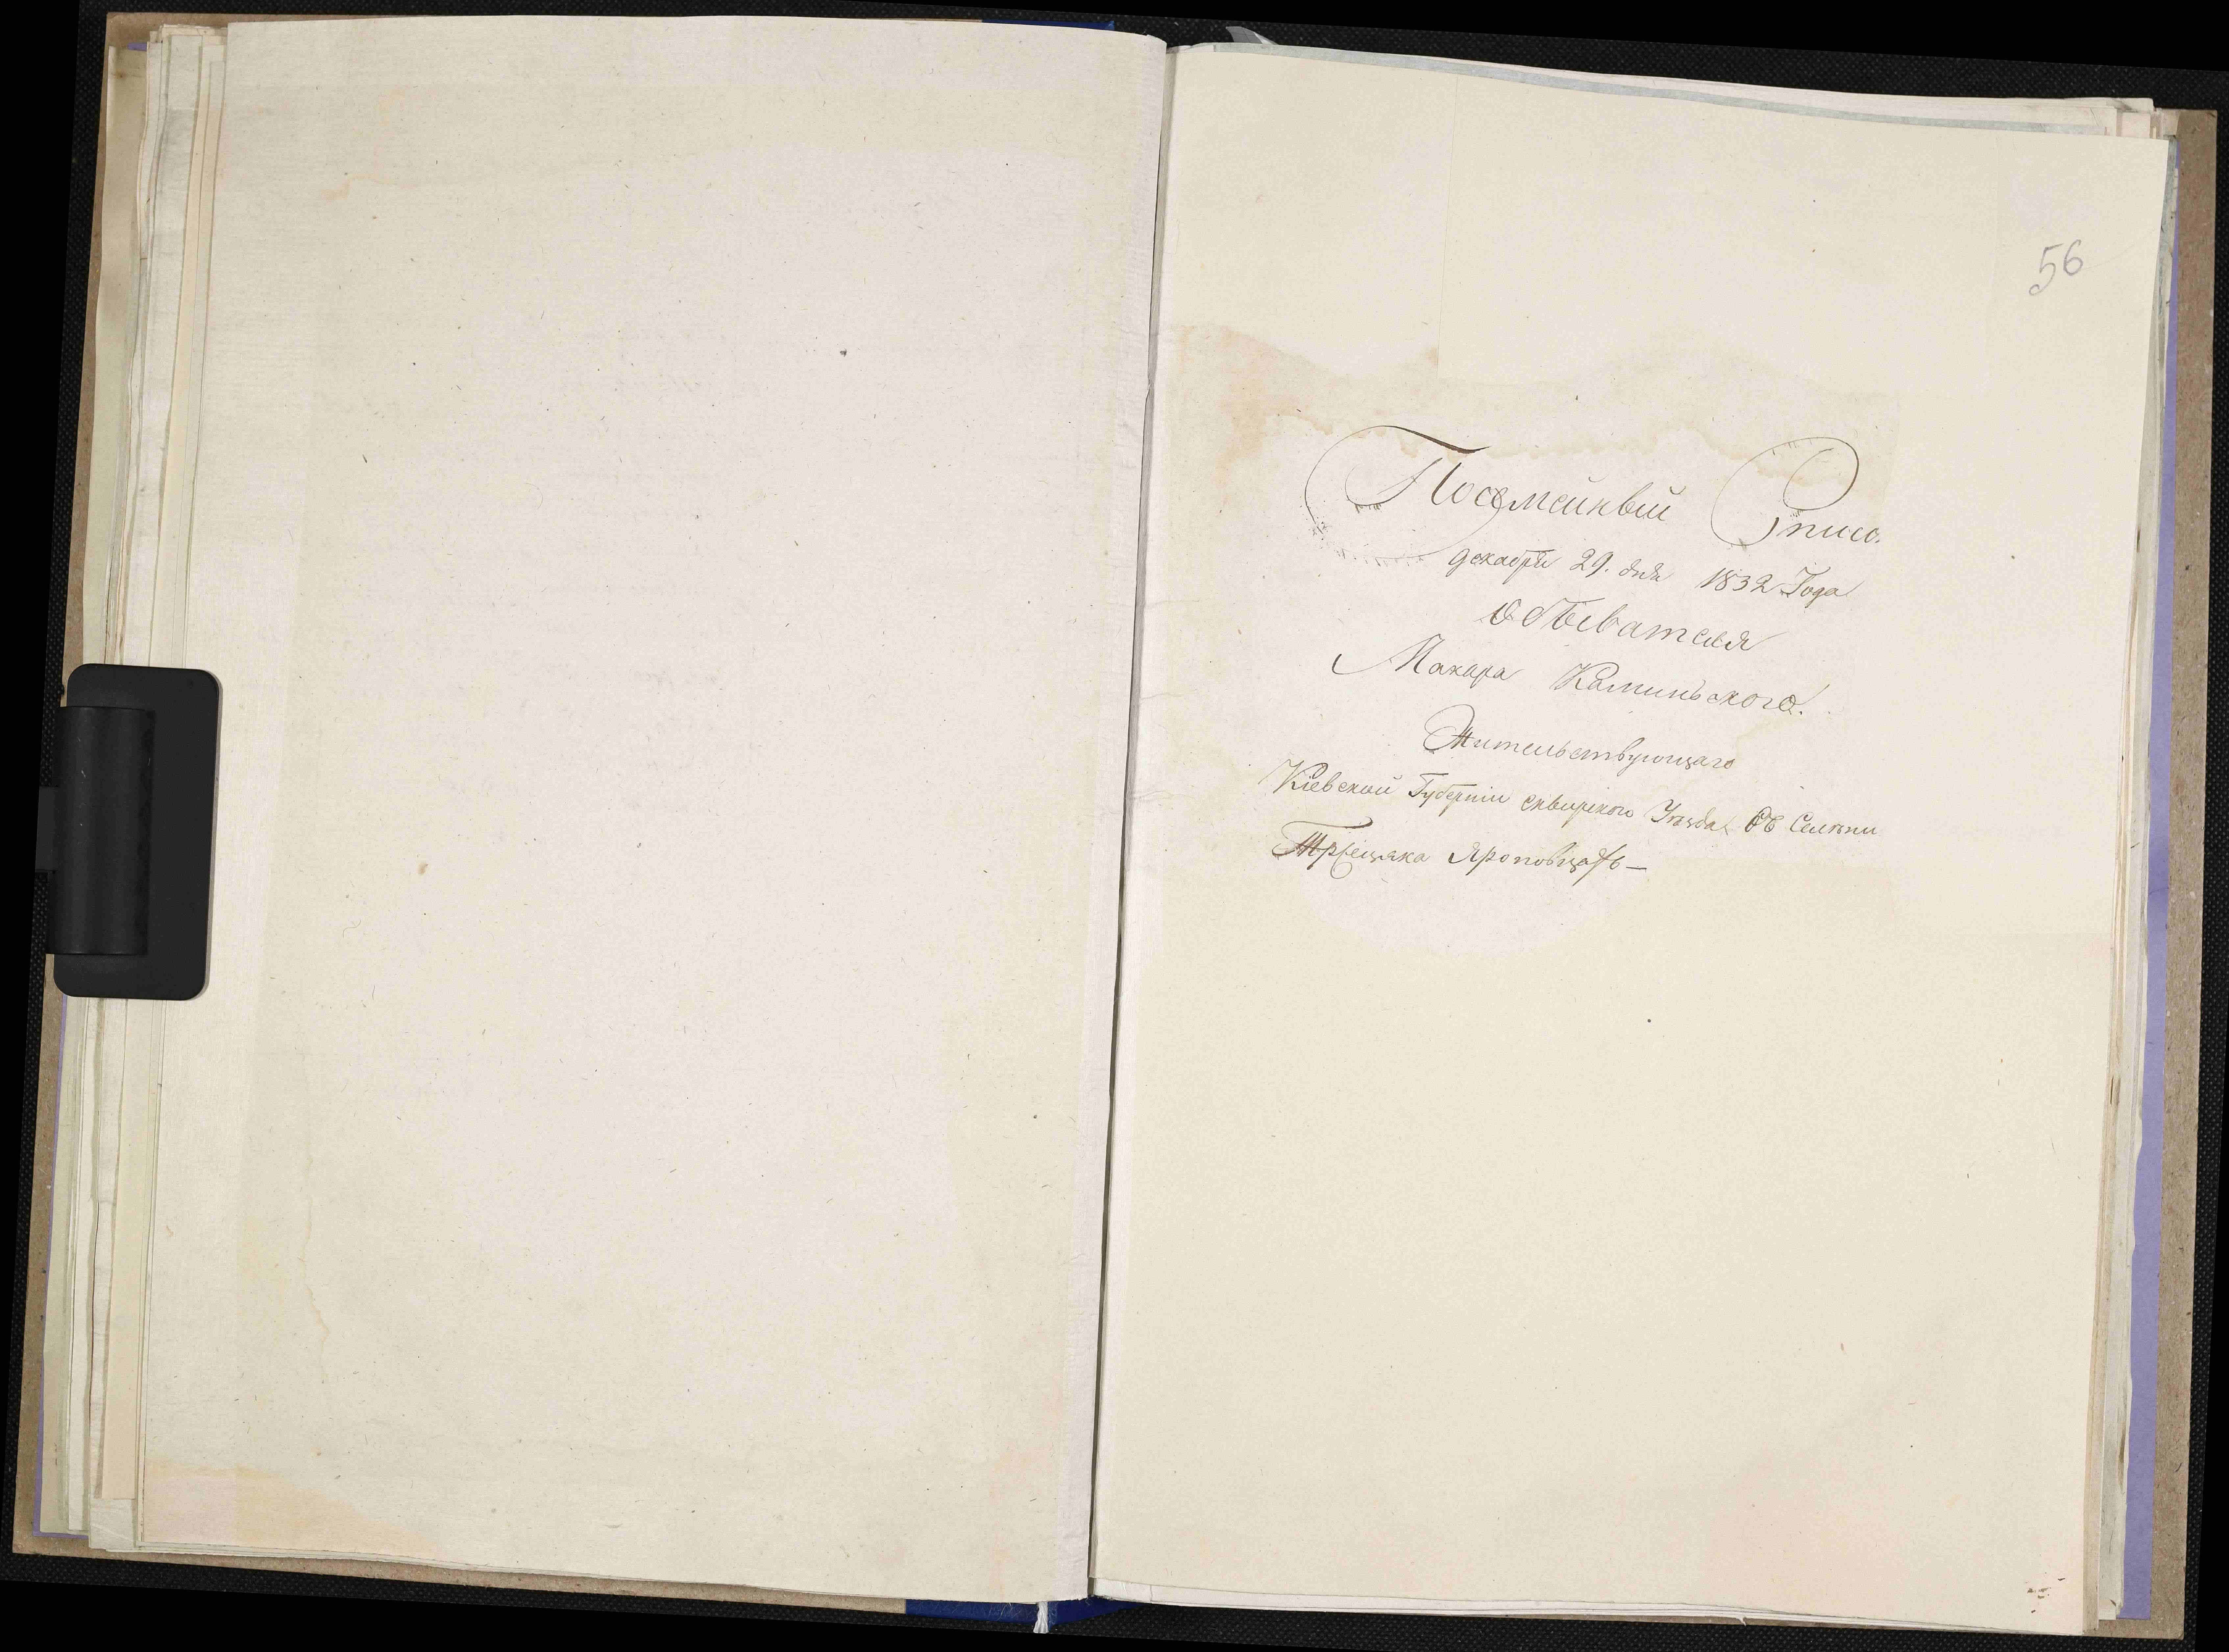 56
Посемейный Списо.
декабря 29. дня 1832 Года
Обывателя
Макара Каминьского.
Жительствующаго
Кіевской Губерніи сквирского Уезда Въ Селѣни
Яроповцахъ—